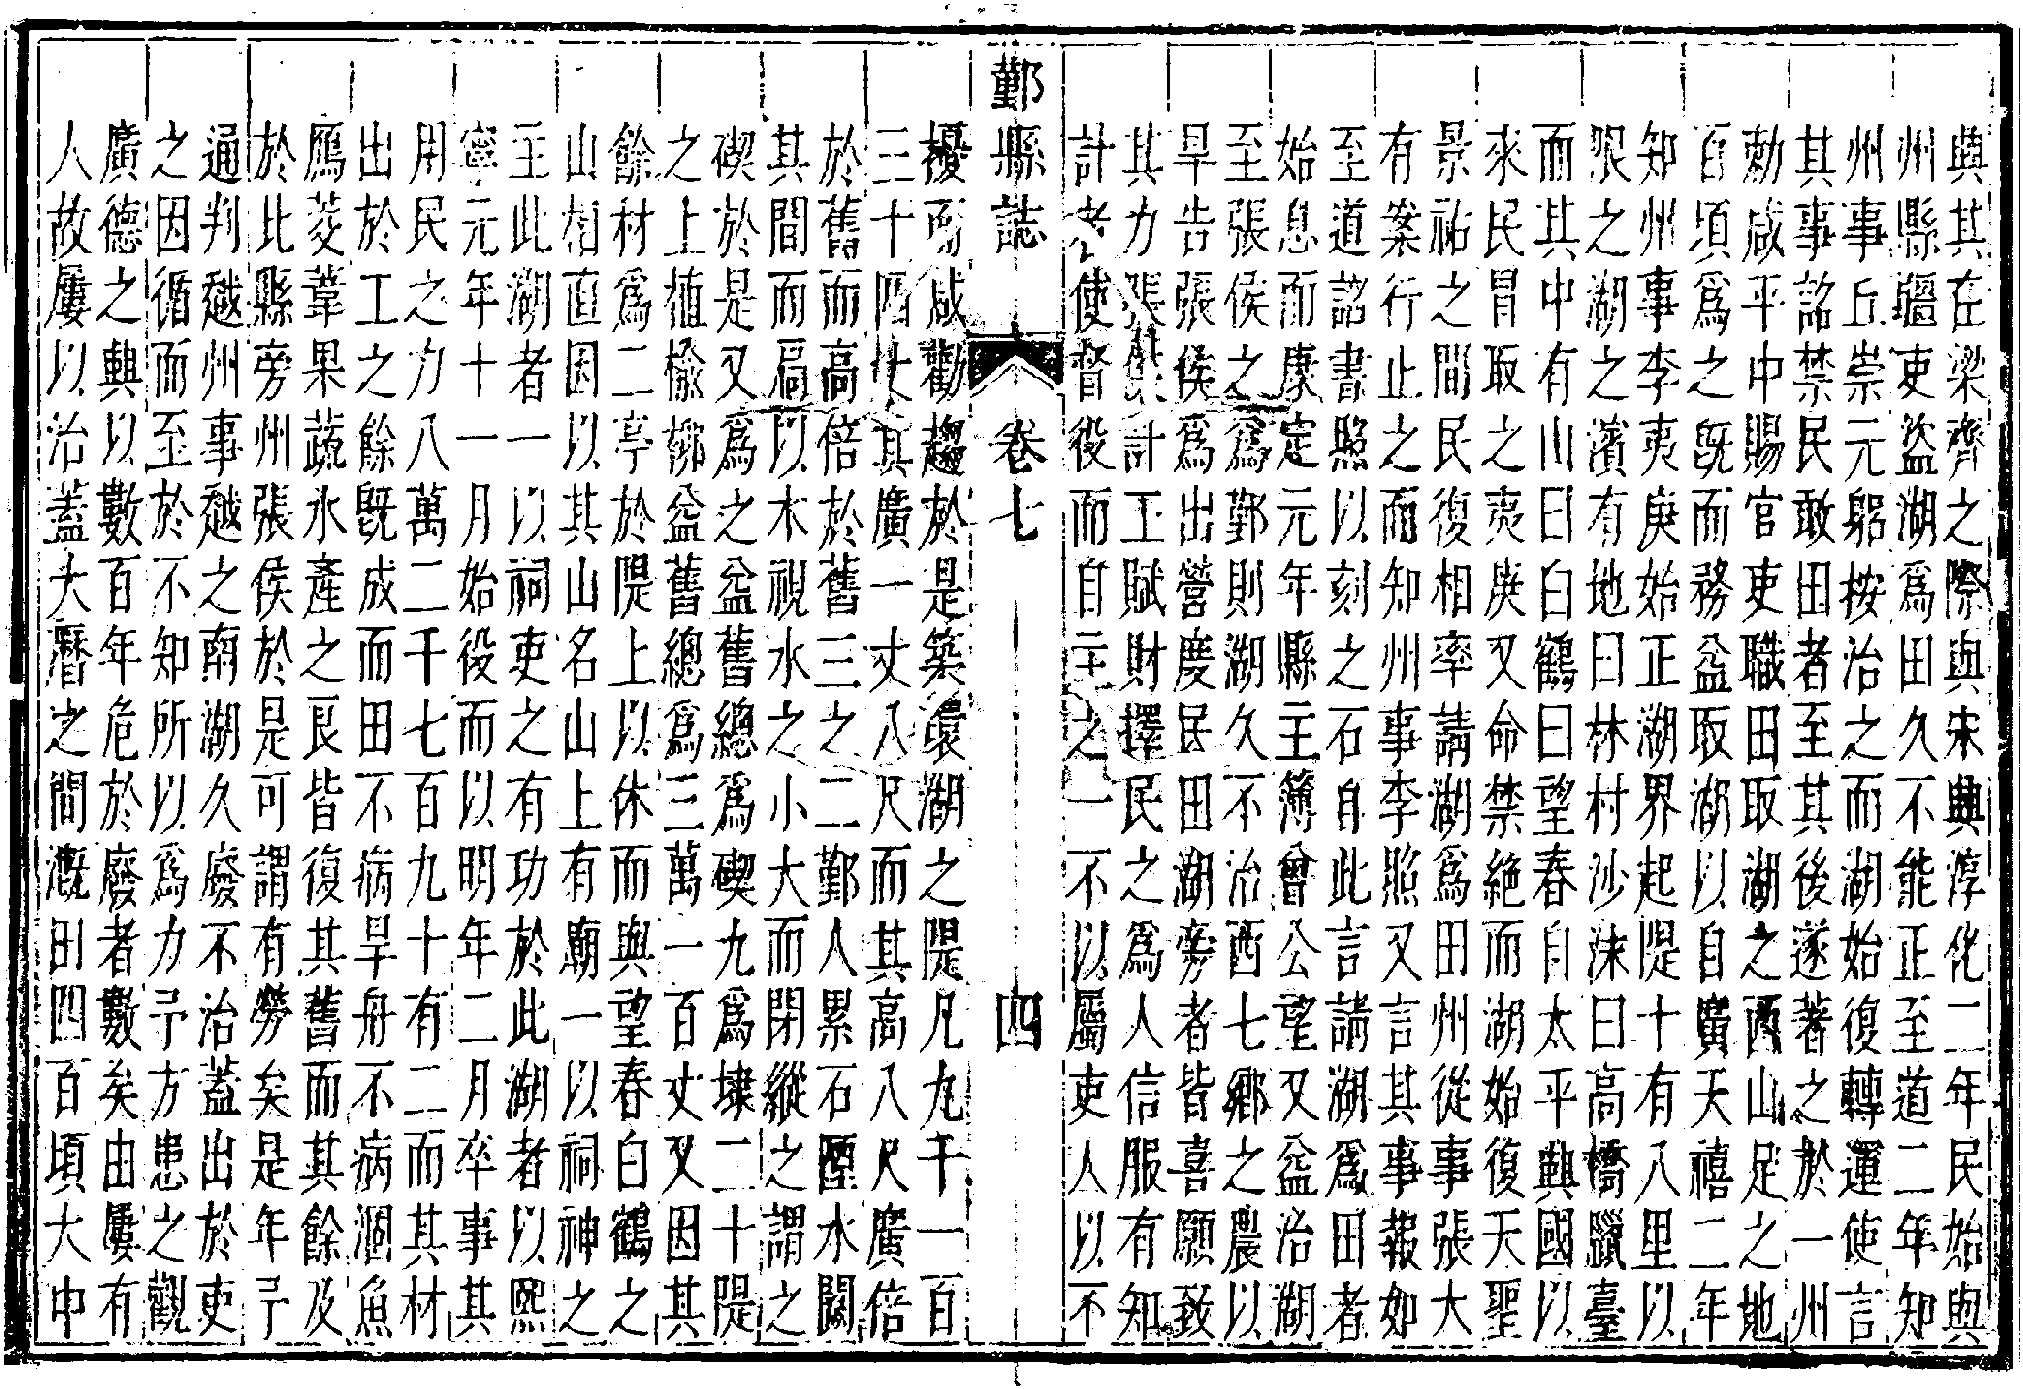 與其在梁齊之際與宋興淳化二年民始與
州縣疆吏盜湖爲田久不能正至道二年知
州事丘崇元躬按治之而湖始復轉運使言
其事詔禁民敢田者至其後遂著之於一州
勅咸平中賜官吏職田取湖之西山足之地
百頃爲之旣而務益取湖以自廣天禧二年
知州事李夷庚始正湖界起隄十有八里以
限之湖之濱有地曰林村沙沫曰高橋臘臺
而其中有山曰白鶴曰望春自太平興國以
來民冒取之夷庚又命禁絶而湖始復天聖
景祐之間民復相率請湖爲田州從事張大
有案行止之而知州事李照又言其事報如
至道詔書照以刻之石自此言請湖爲田者
始息而康定元年縣主簿曾公望又益治湖
至張侯之爲鄞則湖久不治西七鄉之農以
旱告張侯爲出營度民田湖旁者皆喜願致
其力張侯計工賦財擇民之爲人信服有知
計者使督役而自主之一不以屬吏人以不
鄞縣誌 卷七 四
擾而咸勸趨於是築濵湖之隄凡九千一百
三十四丈其廣一丈八尺而其高八尺廣倍
於舊而高倍於舊三之二鄞人累石陻水闕
其間而扃以木視水之小大而閉縱之謂之
碶於是又爲之益舊總爲碶九爲埭二十隄
之上植榆柳益舊總爲三萬一百丈又因其
餘材爲二亭於隄上以休而與望春白鶴之
山相直因以其山名山上有廟一以祠神之
主此湖者一以祠吏之有功於此湖者以熙
寧元年十一月始役而以明年二月卒事其
用民之力八萬二千七百九十有二而其材
出於工之餘旣成而田不病旱舟不病涸魚
鴈茭葦果蔬水產之良皆復其舊而其餘及
於比縣旁州張侯於是可謂有勞矣是年予
通判越州事越之南湖久廢不治蓋出於吏
之因循而至於不知所以爲力予方患之觀
廣德之興以數百年危於廢者數矣由屢有
人故屢以治蓋大曆之間漑田四百頃大中